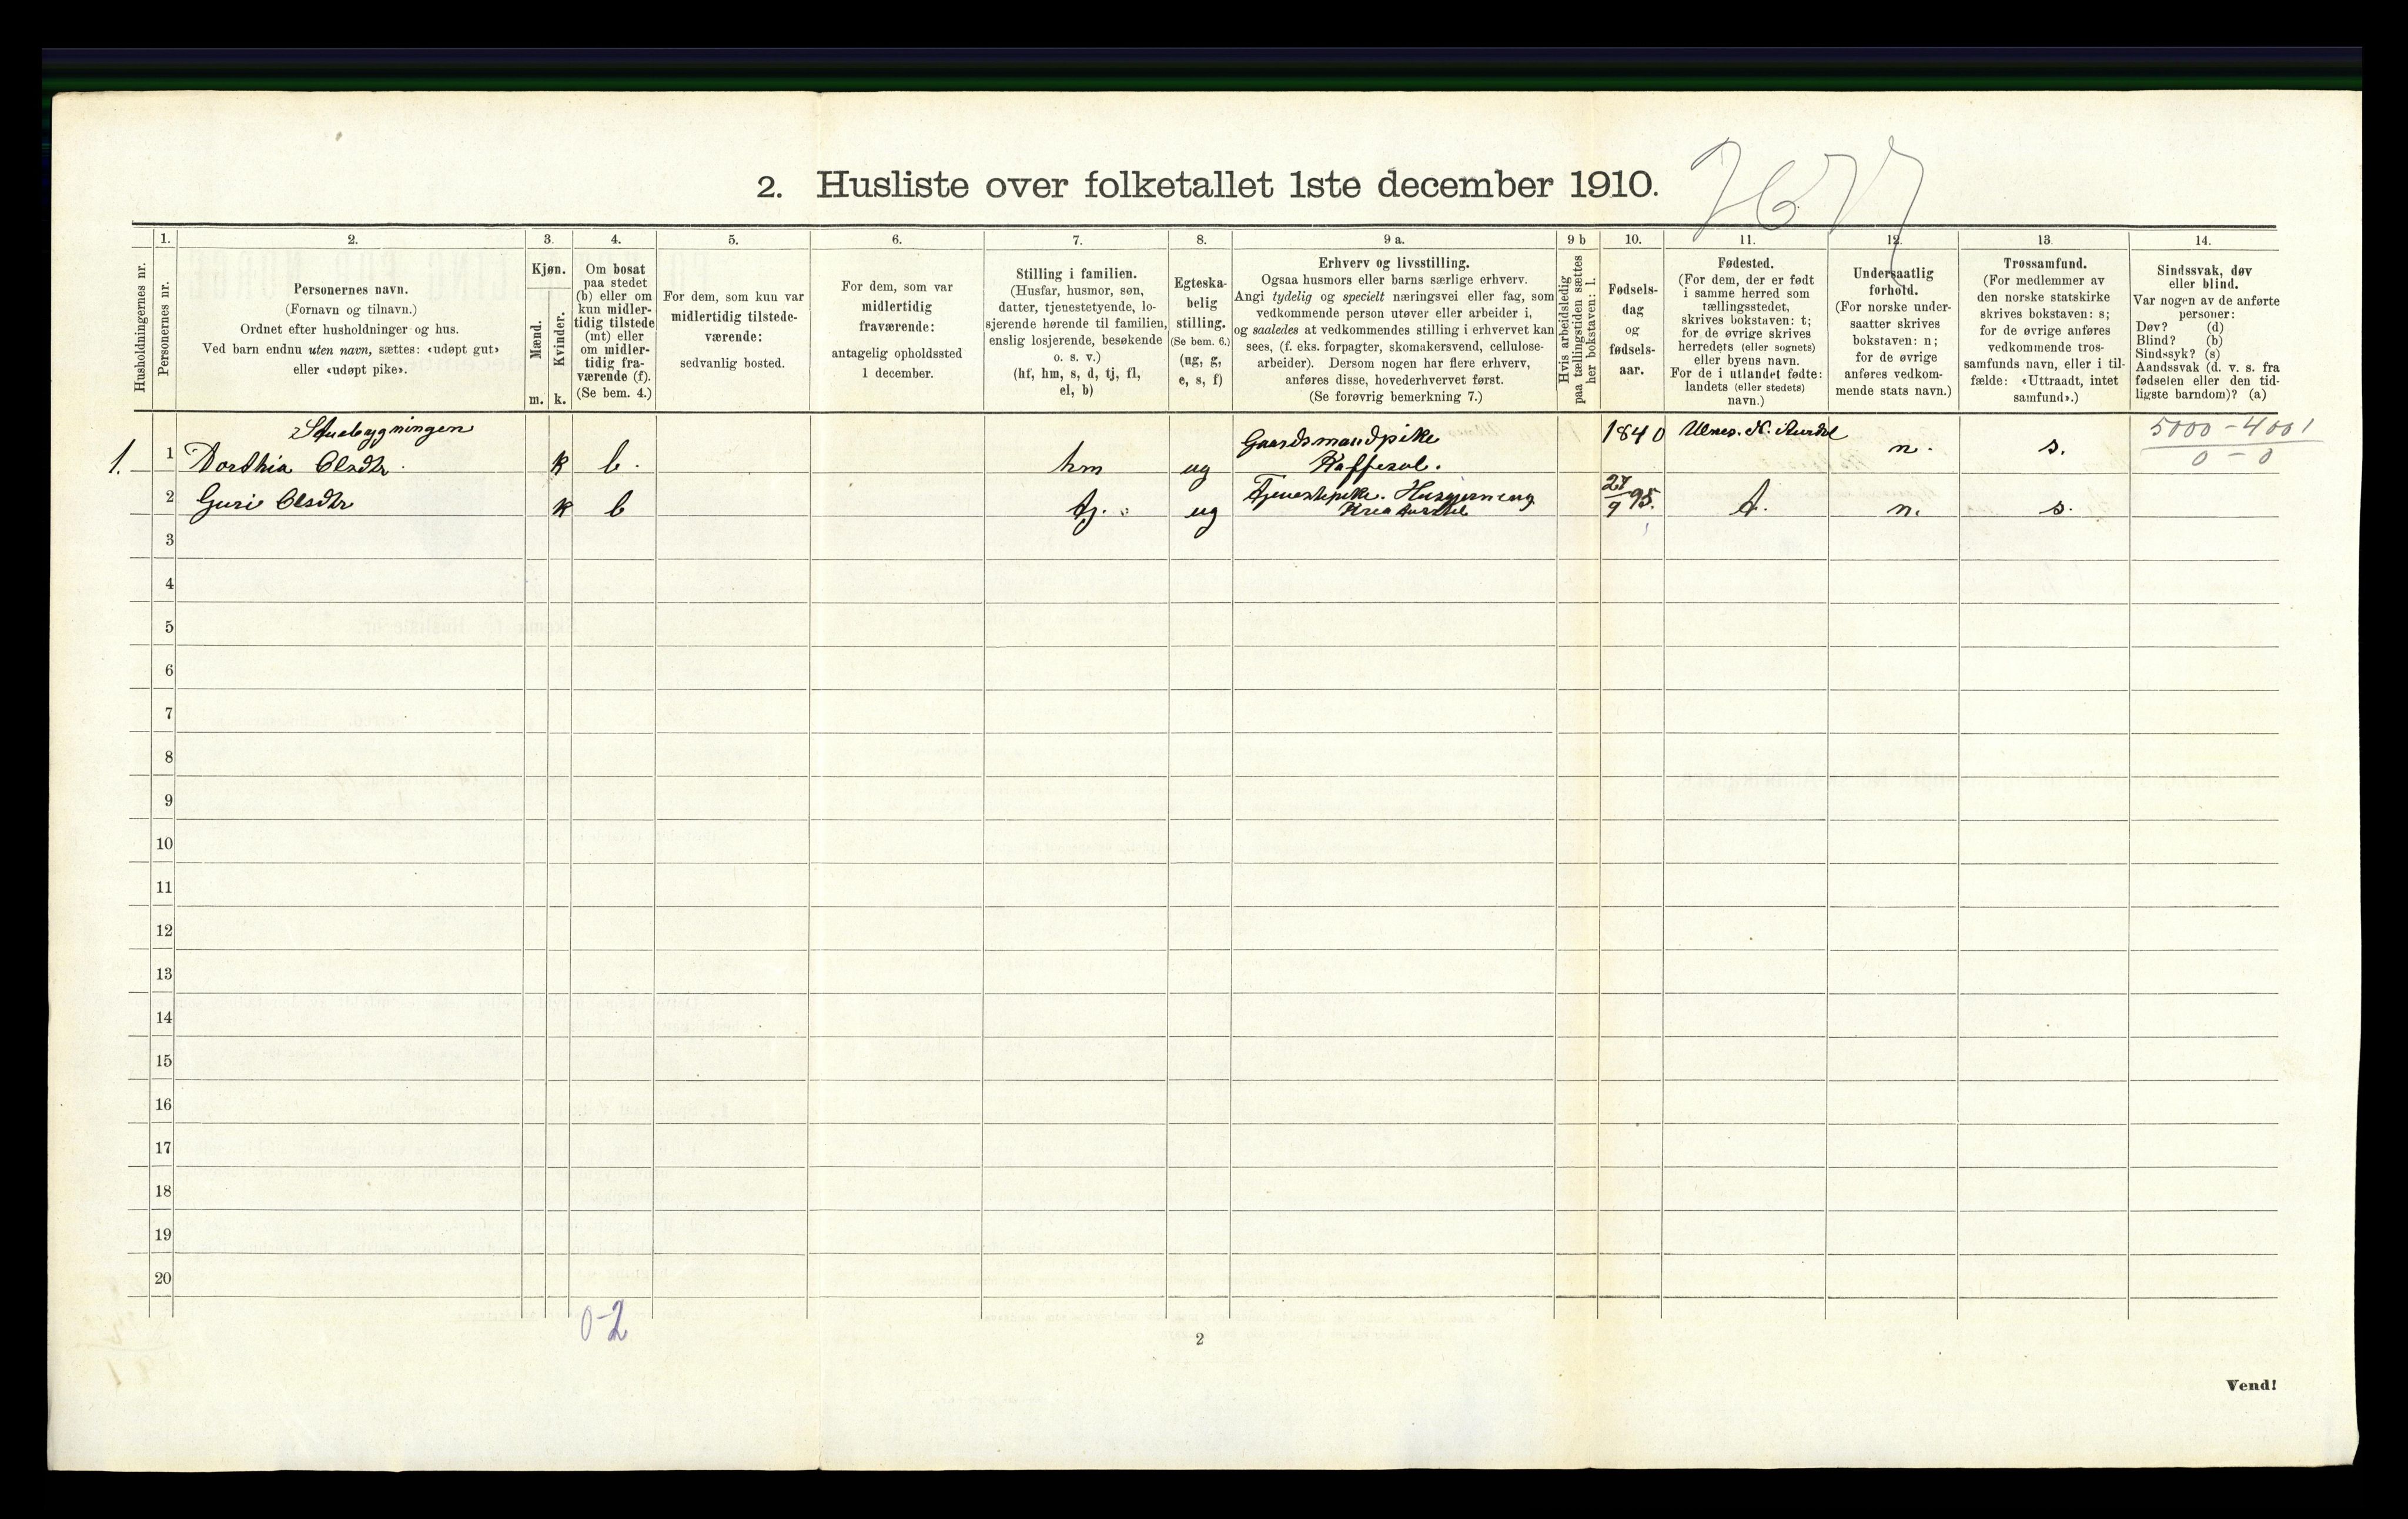 2. Husliste over folketallet 1ste december 1910.
7677
Husholdningernes nr.
1.
Personernes nr.
2.
Personernes navn.
(Fornavn og tilnavn.)
Ordnet efter husholdninger og hus.
Ved barn endnu uten navn, sættes: «udøpt gut»
eller «udøpt pike».
3.
Kjøn.
Mænd.
Kvinder.
m. k.
4.
Om bosat
paa stedet
(b) eller om
kun midler-
tidig tilstede
(mt) eller
om midler-
tidig fra-
værende (f).
(Se bem. 4.)
5.
For dem, som kun var
midlertidig tilstede-
værende:
sedvanlig bosted.
6.
For dem, som var
midlertidig
fraværende:
antagelig opholdssted
1 december.
7.
Stilling i familien.
(Husfar, husmor, søn,
datter, tjenestetyende, lo-
sjerende hørende til familien,
enslig losjerende, besøkende
o. s. v.)
(hf, hm, s, d, tj, fl,
el, b)
8.
Egteska-
belig
stilling.
(Se bem. 6.)
(ug, g,
e, s, f)
9 a.
Erhverv og livsstilling.
Ogsaa husmors eller barns særlige erhverv.
Angi tydelig og specielt næringsvei eller fag, som
vedkommende person utøver eller arbeider i,
og saaledes at vedkommendes stilling i erhvervet kan
sees, (f. eks. forpagter, skomakersvend, cellulose-
arbeider). Dersom nogen har flere erhverv,
anføres disse, hovederhvervet først.
(Se forøvrig bemerkning 7.)
9 b
Hvis arbeidsledig
paa tællingstiden sættes
her bokstaven: l.
10.
Fødsels-
dag
og
fødsels-
aar.
11.
Fødested.
(For dem, der er født
i samme herred som
tællingsstedet,
skrives bokstaven: t;
for de øvrige skrives
herredets (eller sognets)
eller byens navn.
For de i utlandet fødte:
landets (eller stedets)
navn.)
12.
Undersaatlig
forhold.
(For norske under-
saatter skrives
bokstaven: n;
for de øvrige
anføres vedkom-
mende stats navn.)
13.
Trossamfund.
(For medlemmer av
den norske statskirke
skrives bokstaven: s;
for de øvrige anføres
vedkommende tros-
samfunds navn, eller i til-
fælde: «Uttraadt, intet
samfund».)
14.
Sindssvak, døv
eller blind.
Var nogen av de anførte
personer:
Døv? (d)
Blind? (b)
Sindssyk? (s)
Aandssvak (d. v. s. fra
fødselen eller den tid-
ligste barndom)? (a)
Stuebygningen
Gaardsmandpike
1840 Ulnes. N. Aurdal
5000-4001
1. 1 Dorthia Olsdtr. k b. hm ug n. s.
0-0
Tjenestepike. Husgjerning
2 Guri Olsdtr k b tj. ug 27/9 95. t. n. s.
3
4
5
6
7
8
9
10
11
12
13
14
15
16
17
18
19
20
0-2
2
Vend!